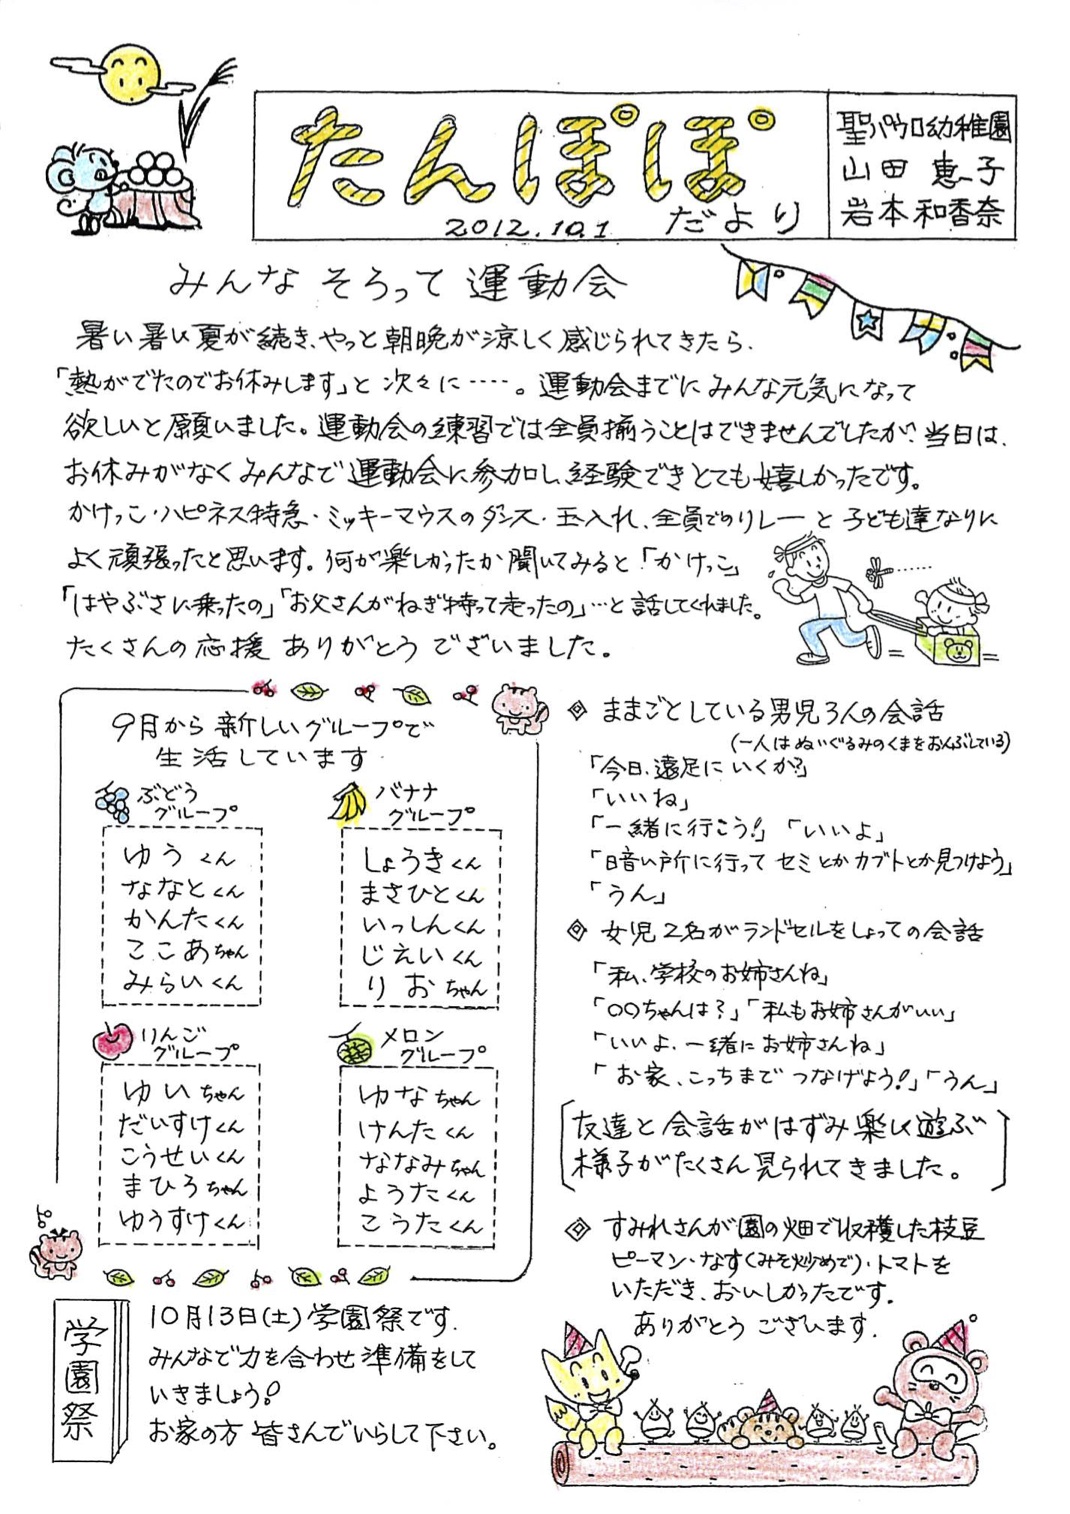 たんぽぽ
だより
2012.10.1
聖パウロ幼稚園
山田 恵子
岩本和香奈
みんな そろって 運動会
暑い暑い夏が続き、やっと朝晩が涼しく感じられてきたら、
「熱がでたのでお休みします」と次々に‥‥‥。運動会までにみんな元気になって
欲しいと願いました。運動会の練習では全員揃うことはできませんでしたが、当日は、
お休みがなくみんなで運動会に参加し、経験できとても嬉しかったです。
かけっこ・ハピネス特急・ミッキーマウスのダンス・玉入れ、全員でのリレーと子ども達なりに
よく頑張ったと思います。何が楽しかったか聞いてみると「かけっこ」
「はやぶさに乗ったの」「お父さんがねぎ持って走ったの」…と話してくれました。
たくさんの応援 ありがとう ございました。
9月から新しいグループで
生活しています
ぶどう
グループ
ゆうくん
ななとくん
かんたくん
ここあちゃん
みらいくん
バナナ
グループ
しょうきくん
まさひとくん
いっしんくん
じえいくん
りおちゃん
りんご
グループ
ゆいちゃん
だいすけくん
こうせいくん
まひろちゃん
ゆうすけくん
メロン
グループ
ゆなちゃん
けんたくん
ななみちゃん
ようたくん
こうたくん
学園祭
10月13日(土)学園祭です。
みんなで力を合わせ準備をして
いきましょう!
お家の方皆さんでいらして下さい。
ままごとしている男児3人の会話
(一人はぬいぐるみのくまをおんぶしている)
「今日、遠足にいくか?」
「いいね」
「一緒に行こう!」「いいよ」
「暗い所に行ってセミとかカブトとか見つけよう」
「うん」
女児2名がランドセルをしょっての会話
「私、学校のお姉さんね」
「○○ちゃんは?」「私もお姉さんがいい」
「いいよ、一緒にお姉さんね」
「お家、こっちまでつなげよう!」「うん」
友達と会話がはずみ楽しく遊ぶ
様子がたくさん見られてきました。
すみれさんが園の畑で収穫した枝豆
ピーマン・なす(みそ炒めで)・トマトを
いただき、おいしかったです。
ありがとう ございます。